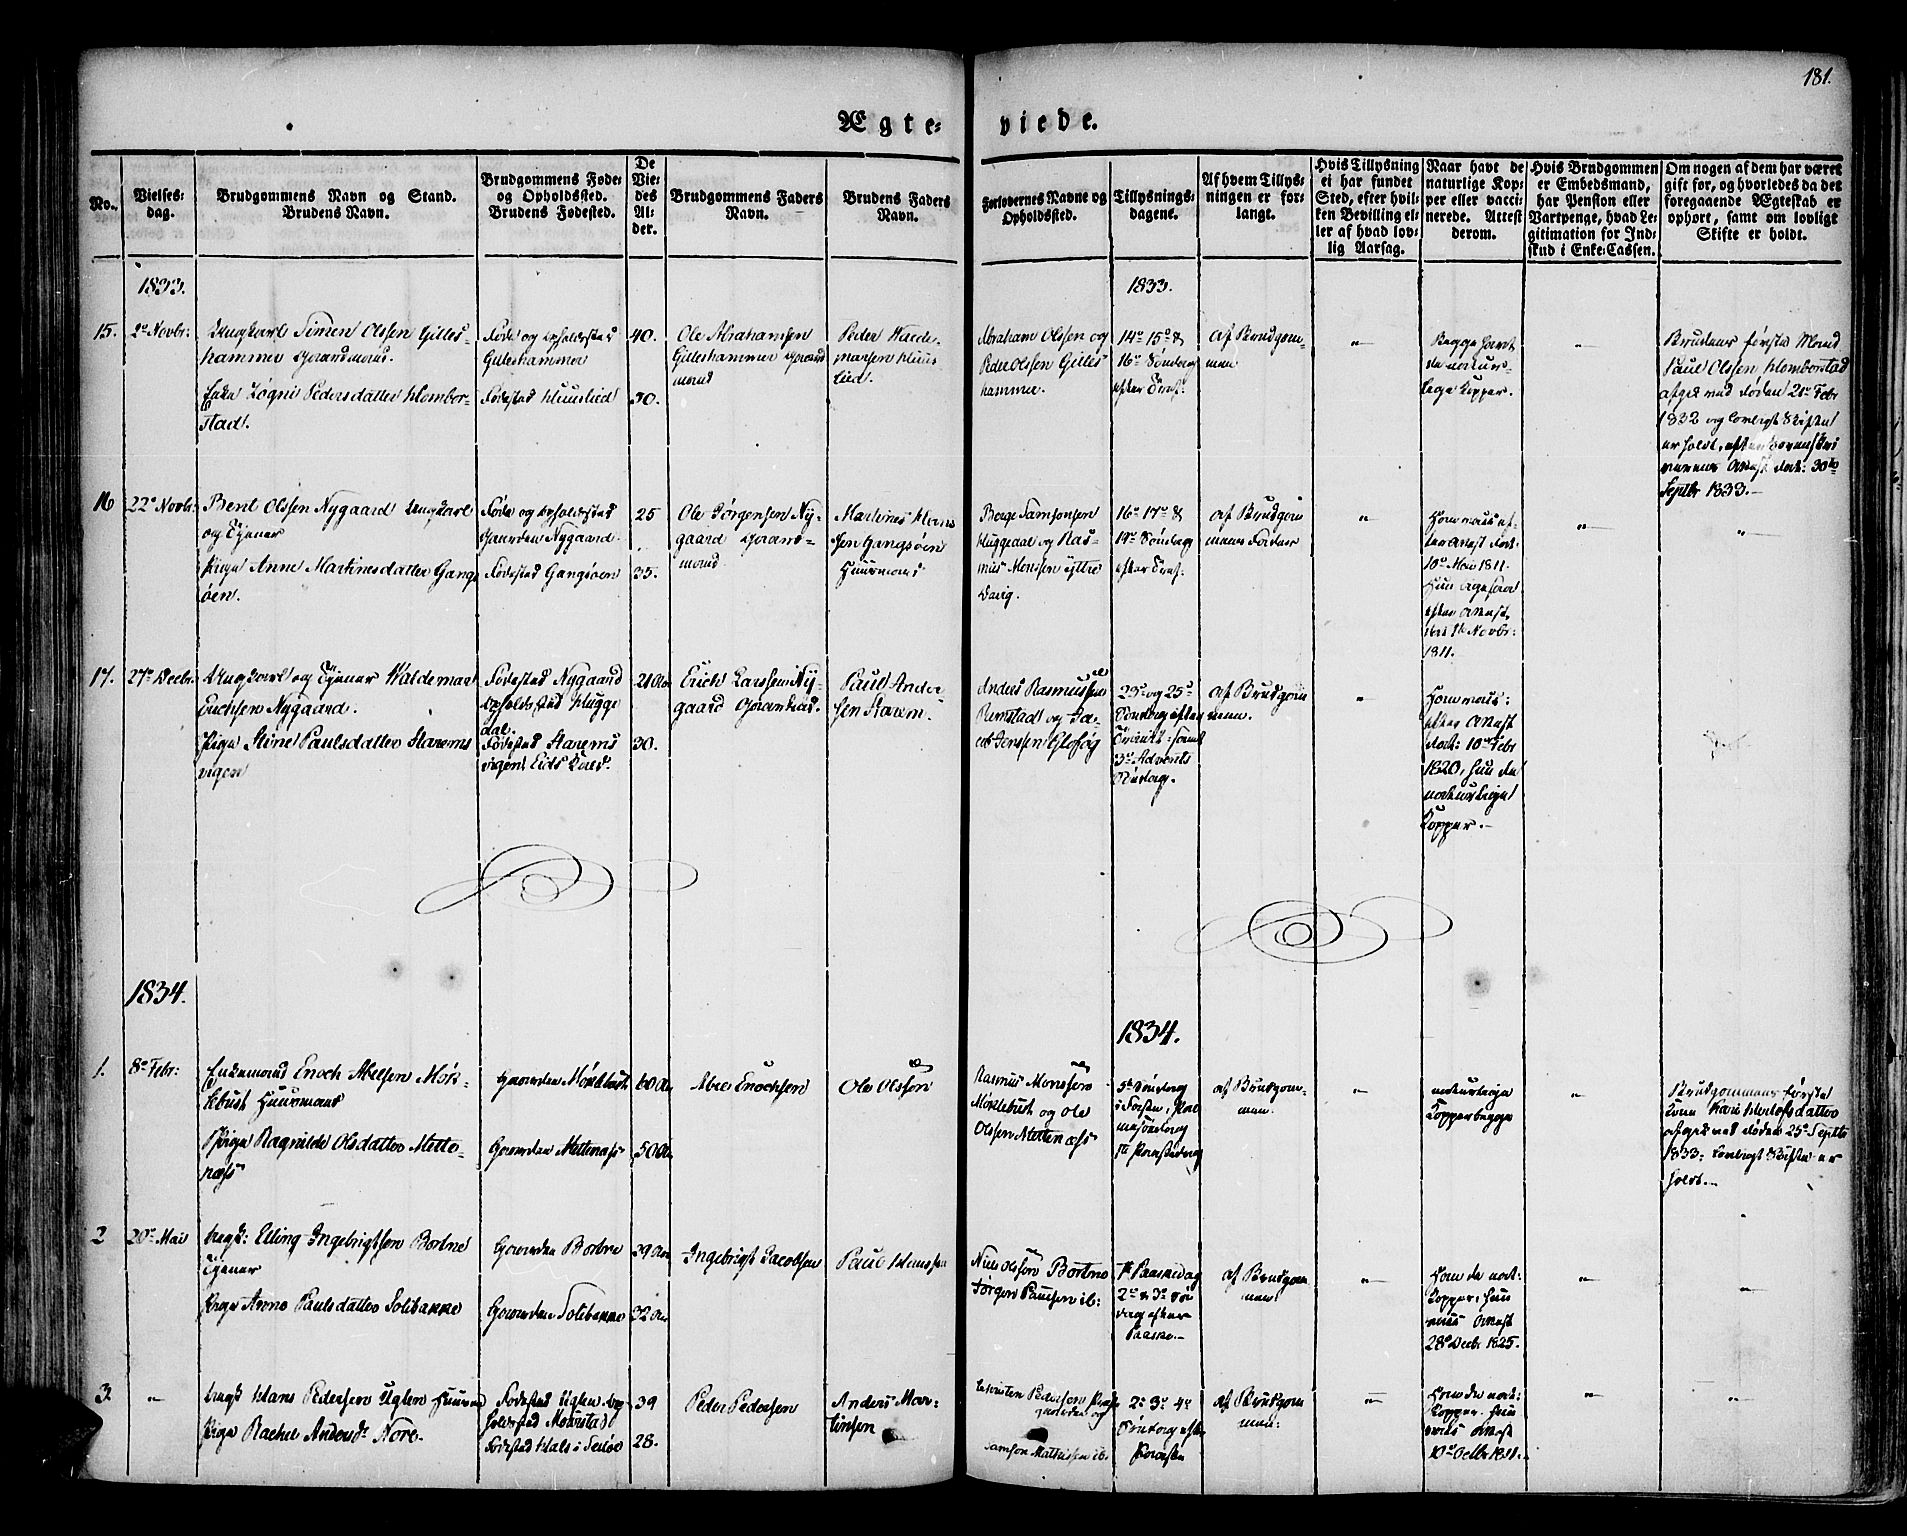 181.
Ægte- viede.
No.
Vielses-
dag.
Brudgommens Navn og Stand.
Brudens Navn.
Brudgommens Føde-
og Opholdssted.
Brudens Fødested.
De
Vie-
des
Al-
der.
Brudgommens Faders
Navn.
Brudens Faders
Navn.
Forlovernes Navne og
Opholdssted.
Tillysnings-
dagene.
Af hvem Tillys-
ningen er for-
langt.
Hvis Tillysning
ei har fundet
Sted, efter hvil-
ken Bevilling el-
ler af hvad lov-
lig Aarsag.
Naar havt de
naturlige Kop-
per eller vacci-
nerede. Attest
derom.
Hvis Brudgommen
er Embedsmand,
har Pension eller
Vartpenge, hvad Le-
gitimation for Ind-
skud i Enke-Cassen.
Om nogen af dem har været
gift før, og hvorledes da det
foregaaende Ægteskab er
ophørt, samt om lovligt
Skifte er holdt.
1833.
1833.
15. 2e Novbr:
Ungkarl Simen Olssen Gilles-
hammer Gaardmand.
Enke Pedersdatter Homber-
stad.
Føde og Opholdssted
Gilleshammer
Fødested Huuslied
40.
30.
Ole Abrahamsen
Gilleshammer Gaard
mand
Peder Walde-
marsen Huus
lied.
Abraham Olssen og
Peder Olssen Gilles
hammer.
14de 15de &
16de Søndag
efter Tref:
af Brudgom-
men
Begge havt
de natur-
lige Kopper.
Brudens første Mand
Paul Olssen Homborstad
afgik ved Døden 21de Febr
1832 og lovligt Skifte
er holdt, efter Sorenskri
verens Attest dat: 30te
Septbr 1833.
16 22de Novbr:
Bent Olssen Nygaard Ungkarl
og Tjener
Pige Anne Martinesdatter Gangs
øen.
Føde og Opholdssted
Gaarden Nygaard.
Fødested Gangsøen
25
35.
Ole Jørgensen Ny-
gaard Gaard-
mand
Martines Hans
sen Gangsøen
Huusmand
Berge Samsonsen
Huggedal og Ras-
mus Monssen Yttre
Davig.
16de 17de &
19de Søndag
efter Tref:
af Brudgom
mens Fader
Ham vacc: ef-
ter Attest dat.
10de Mai 1811.
Hun ligesaa
efter Attest
1ste Novbr:
1811.
17. 27de Decbr.
Ungkarl og Tjener Waldemar
Erichsen Nygaard.
Pige Stine Paulsdatter Starems
vigen
Fødested Nygaard
Opholdssted Hugge
dal.
Fødested Starems
vigen Eids Præd.
21 Aar
30.
Erich Larssen Ny-
gaard Gaardmd.
Paul Ander
sen Starem.
Anders Rasmussen
Remstad og Ja-
cob Jenssen
23de og 25de
Søndag efter
Trinit: samt
3de Advents
Søndag.
af Brudgom
men.
Ham vacc:
efter Attest
dat: 10de Febr
1820, hun de
naturlige
Kopper.
1834.
1834.
1. 8de Febr:
Enkemand Enoch Abelsen Mør-
kebust Huusmand
Pige Ragnilde Olsdatter Mette-
næss
Gaarden Mørkebust
Gaarden Mettenæss
60 Aar
50 Aar
Abel Enochsen
Ole Olssøn
Rasmus Monssøn
Mørkebust og Ole
Olssøn Mettenæss
5te Søndag
i Fasten, Pal
mesøndag
1ste Paaskedag
af Brudgom-
men.
naturlige
Kopper begge
Brudgommens første
Kone Kari Olofsdatter
afgik ved Døden 25de Septbr
1833. Lovligt Skifte er
holdt.
2 20de Mai
Ungk: Elling Ingebrigtsen Bortne
Tjener
Pige Anne Paulsdatter Solibakke
Gaarden Bortne
Gaarden Solibakke
39 Aar
32 Aar
Ingebrigt Jacobsen
Paul Hanssen
Niels Olssøn Bortne
Jørgen Paulsen ib:
1ste Paaskedag
2de & 3de Søn
dag efter
Paaske.
af Brudgom
men.
Ham de nat:
Kopper, hun
vacc: Attest
28de Decbr 1825.
3.
Ungk Hans Pedersen Uglen Huusmd
Pige Rachel Andersd: Nore.
Fødested Uglen Op
holdssted Maurstad
Fødested Hals i Selløe
39
28.
Peder Pedersen
Anders Mar-
tinsen
Pedersøn
og
Samson Mathissen ib.
2de 3de 4de
Søndag efter
Paasken
af Brudgom
men:
Ham de nat:
Kopper. hun
vacc: Attest
10de Octbr 1811.